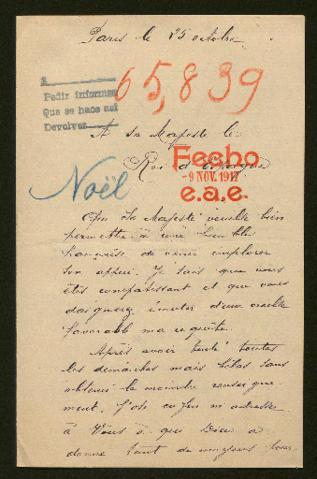 Paris le 25 octobre
65,839
A
Pedir informes
Que se hace así
Devolver
A Sa Majesté le
Roi d'Espagne
Fecho
-9 NOV. 1917
e.a.e.
Noël
Que Sa Majesté veuille bien
permettre à une humble
française de venir implorer
son appui. Je sais que vous
êtes compatissant et que vous
daignerez écouter d'une oreille
favorable ma requête.
Après avoir tenté toutes
les démarches mais hélas sans
obtenir le moindre renseigne
ment. J'ose enfin m'adresser
à Vous à qui Dieu a
donné tant de